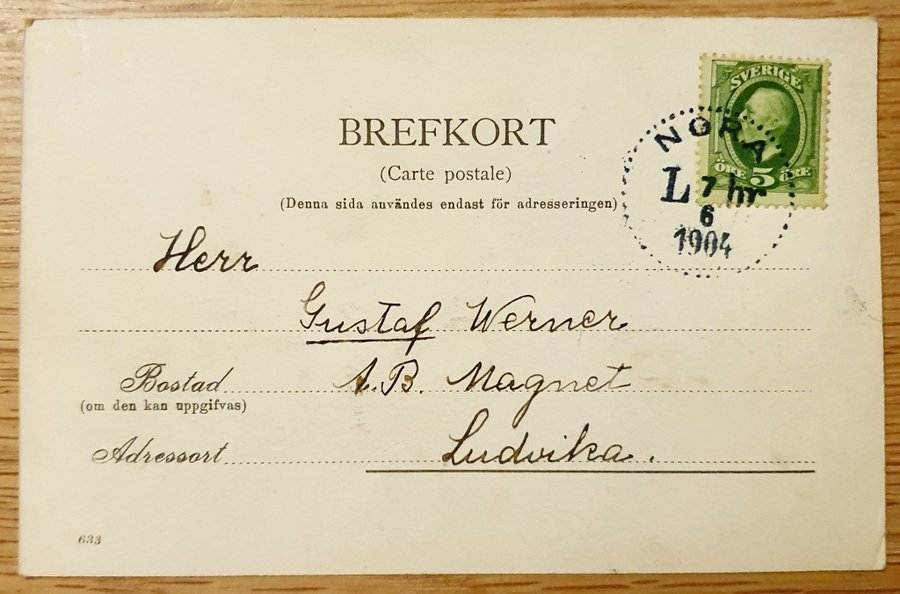 SVERIGE
ÖRE 5 ÖRE
NORA
L 7 hr
6
1904
BREFKORT
(Carte postale)
(Denna sida användes endast för adresseringen)
Herr
Gustaf Werner
Bostad A.B. Magnet
(om den kan uppgifvas)
Adressort Ludvika.
633